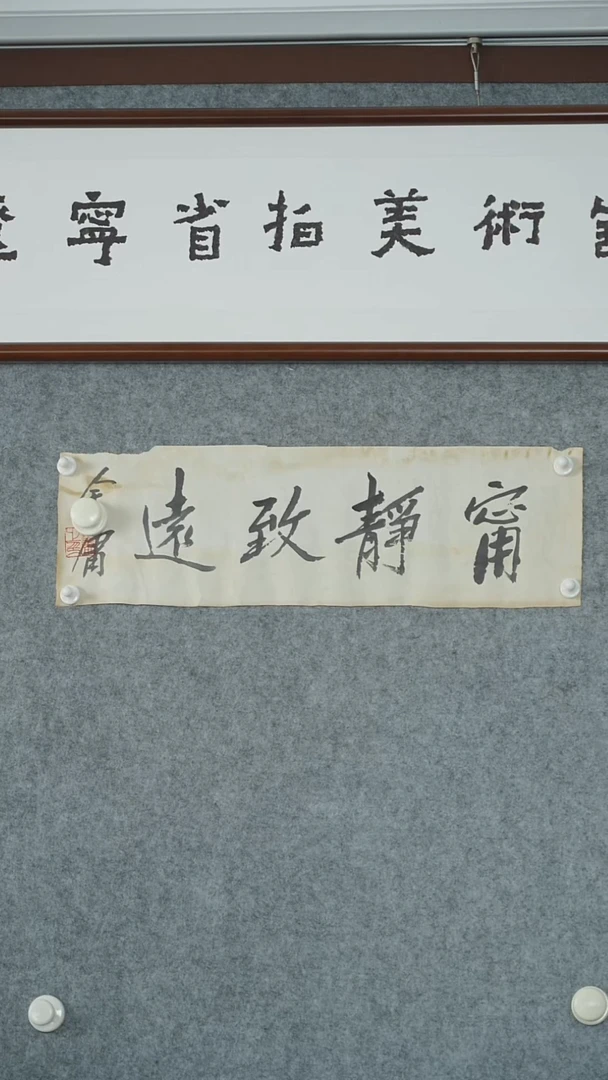 寧省拍美術
甯靜致遠
金庸